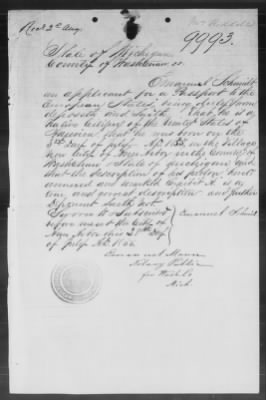 Recd 2d Aug
9993.
State of Michigan
County of Washtenaw ss.
Emanuel Schmidt
an applicant for a Passport to the
European States, being duly sworn
deposeth and saith That he is a
native Citizen of the United States of
America that he was born on the
day of July AD. in the Village
now City of Ann Arbor in the County of
Washtenaw State of Michigan and
that the description of his person hereto
annexed and marked Exhibit A. is a
true and correct description and further
Deponent saith not
Sworn & Subscribed
before me at the City of
Ann Arbor this 28th Day
of July AD. 1866
Emanuel Schmidt
Emanuel Mann
Notary Public
for Washtenaw Co
Mich.